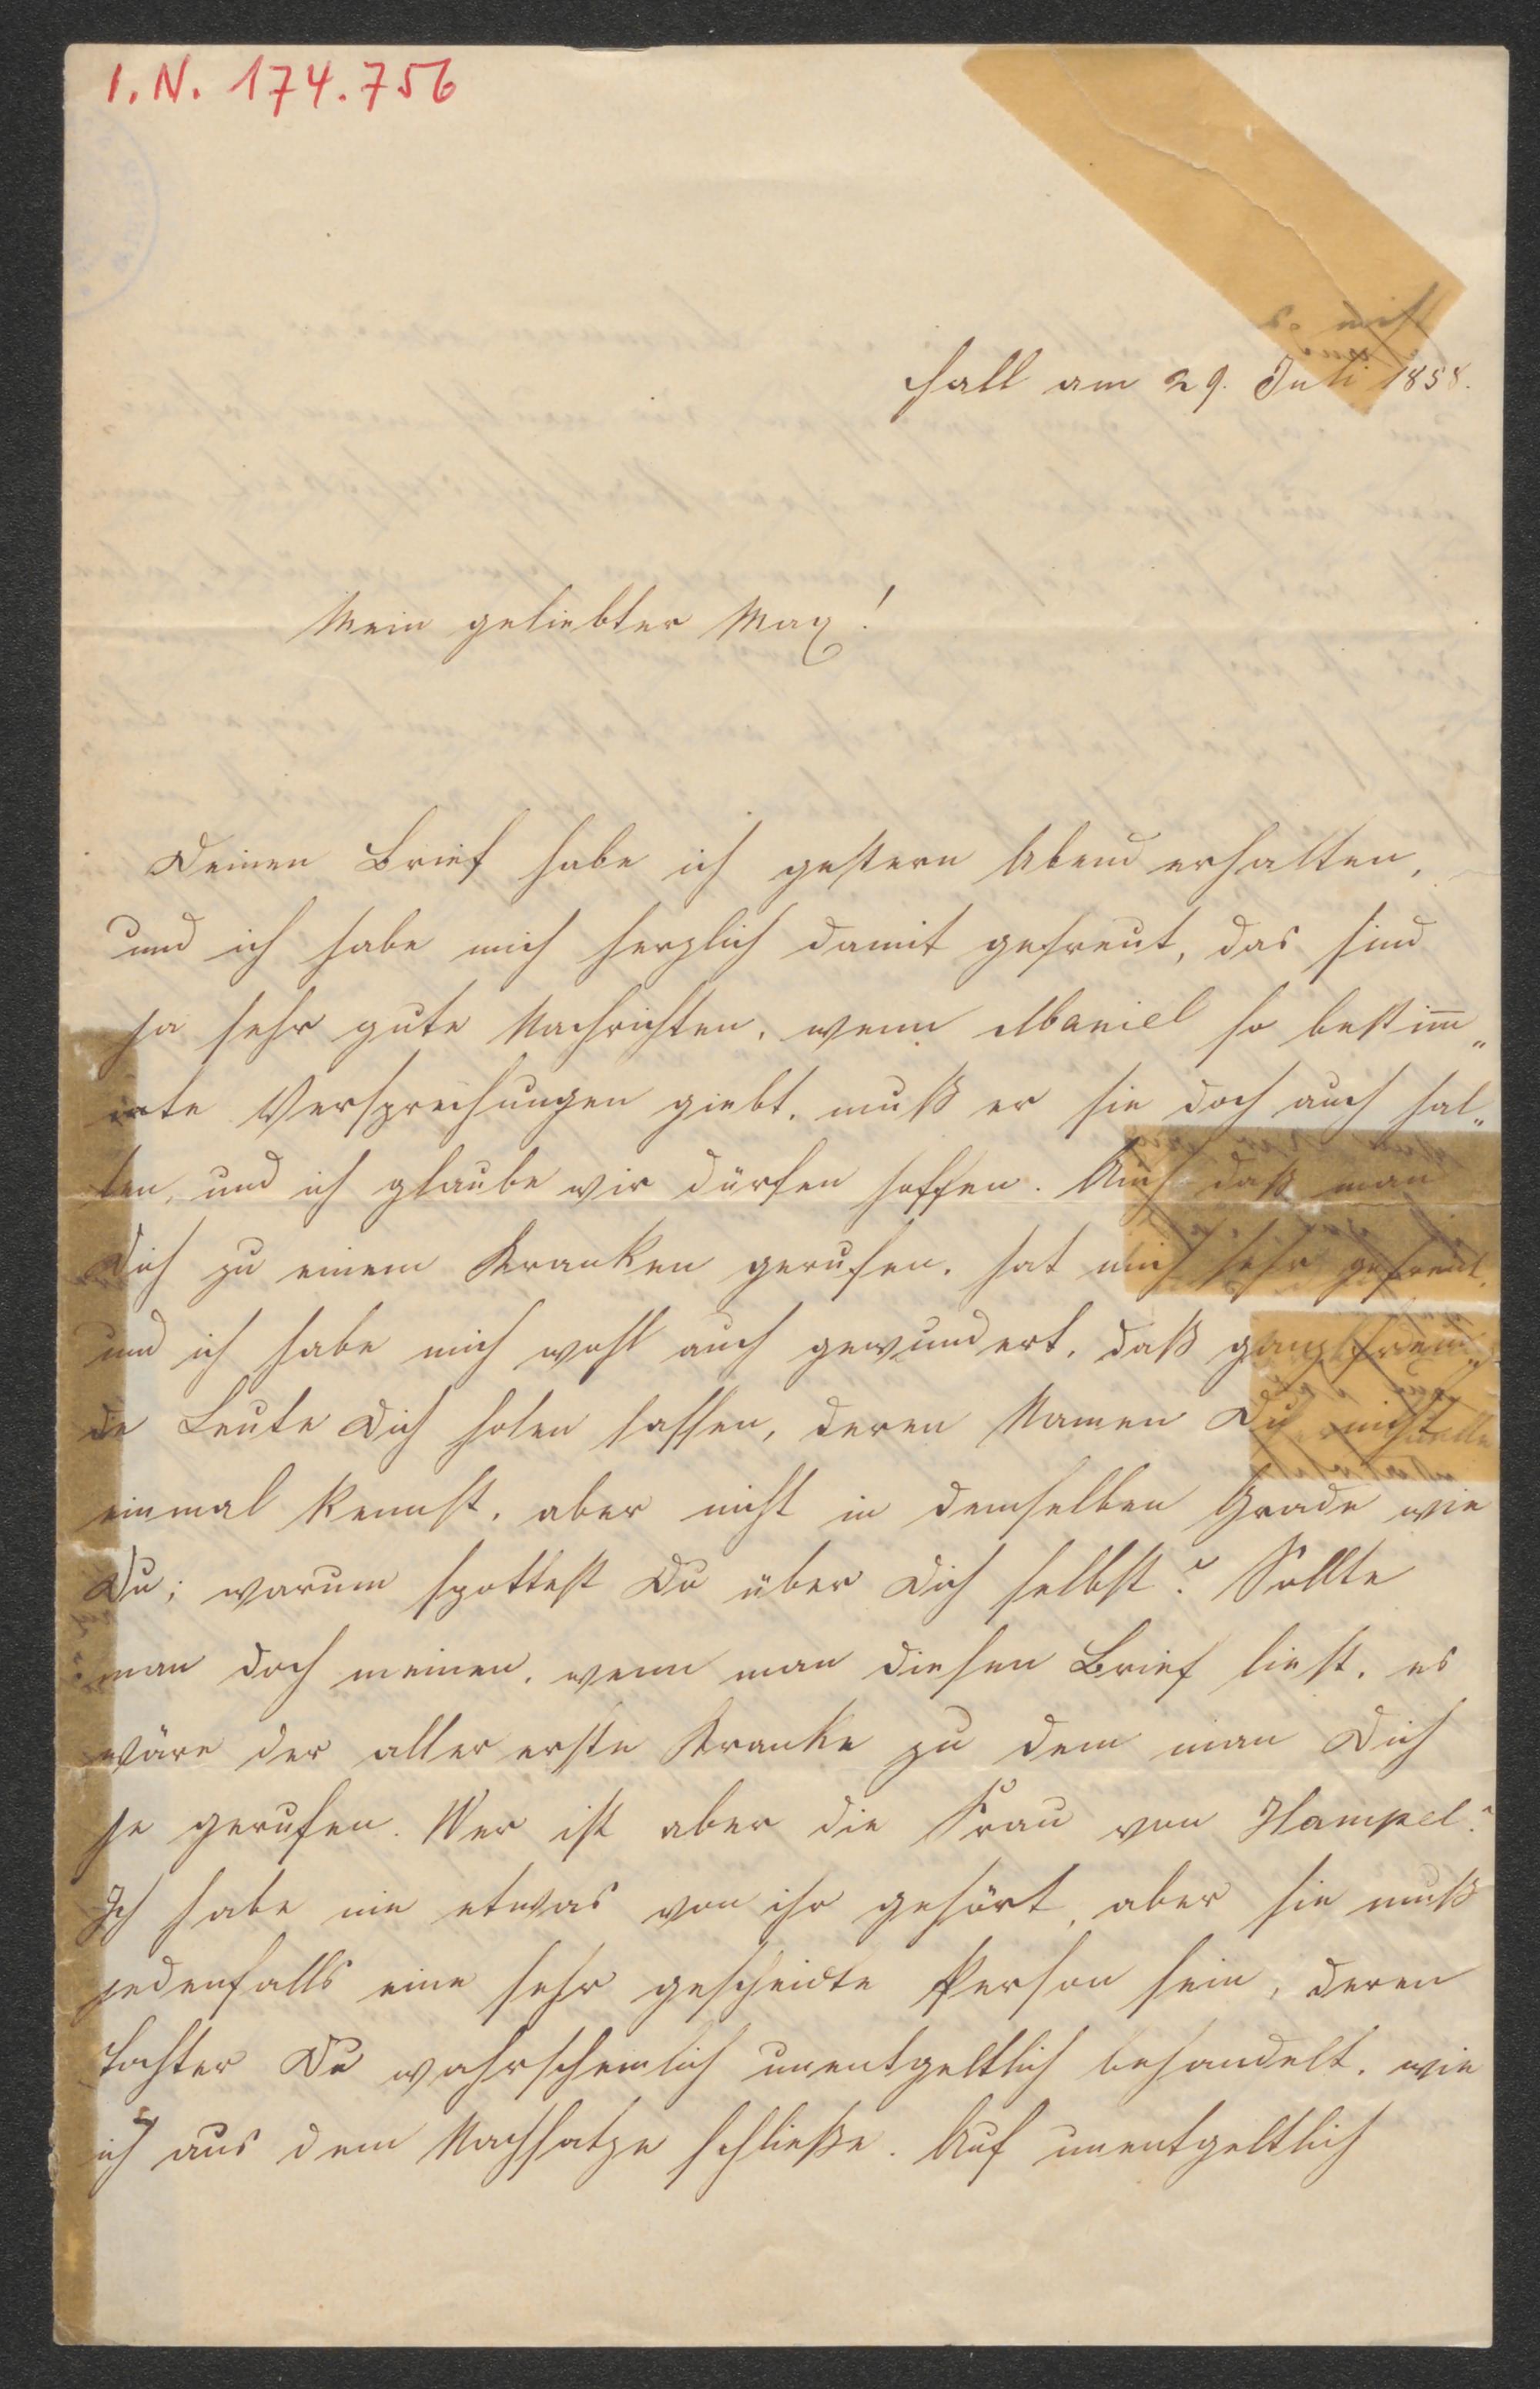 I.N. 174.756
Hall am 29. Juli 1858.
Mein geliebter Max!
Deinen Brief habe ich gestern Abend erhalten,
und ich habe mich herzlich damit gefreut, das sind
ja sehr gute Nachrichten, wenn so bestim̅„
mte Versprechungen giebt, muß er sie doch auch hal„
ten, und ich glaube wir dürfen hoffen. Auch daß man
Dich zu einem Kranken gerufen, hat mich sehr gefreut,
und ich habe mich wohl auch gewundert, daß ganz frem„
de Leute Dich holen lassen, deren Namen Du nicht
einmal kennst, aber nicht in demselben Grade wie
Du; warum spottest Du über Dich selbst? Sollte
man doch meinen, wenn man diesen Brief liest, es
wäre der aller erste Kranke zu dem man Dich
je gerufen. Wer ist aber die Frau von Hampel?
Ich habe nie etwas von ihr gehört, aber sie muß
jedenfalls eine sehr gescheidte Person sein, deren
Tochter Du wahrscheinlich unentgeltlich behandelt, wie
ich aus dem Nachsatze schließe. Auf unentgeltlich